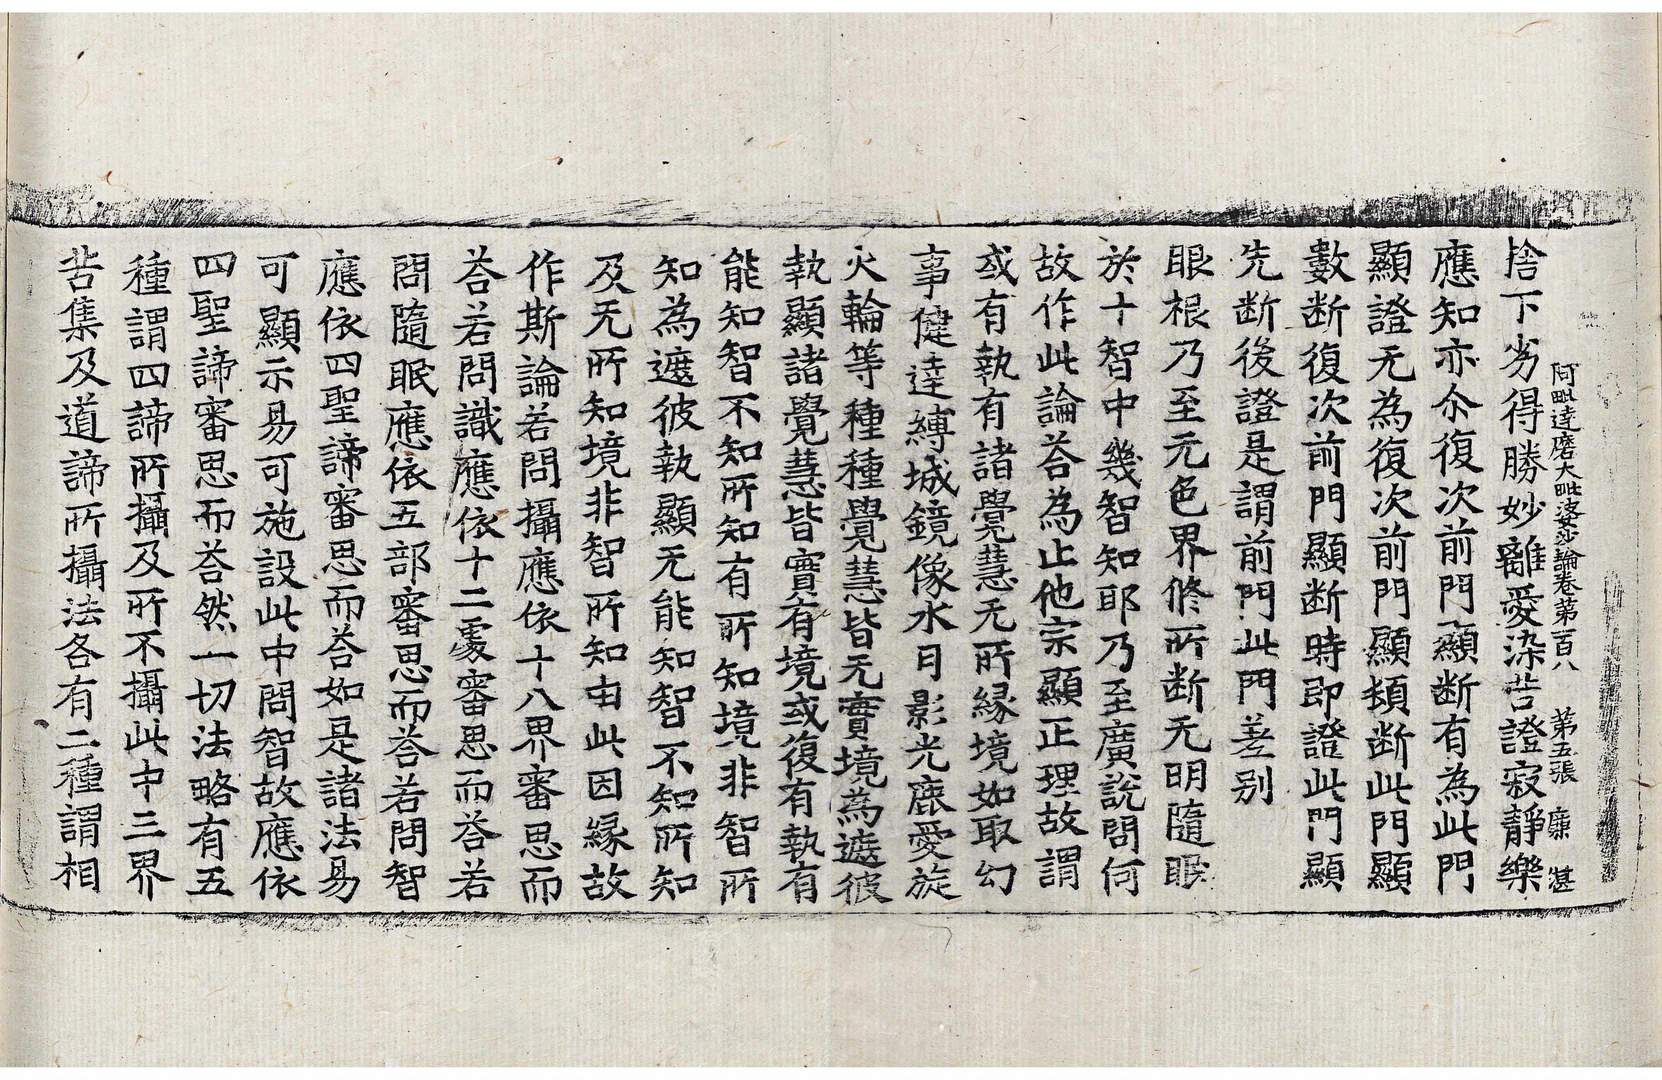 阿毗達磨大毗婆沙論卷第百八 第五張 廉 湛
捨下劣得勝妙離愛染苦證寂靜樂
應知亦尒復次前門顯断有為此門
顯證无為復次前門顯頓断此門顯
數断復次前門顯断時即證此門顯
先断後證是謂前門此門差别
眼根乃至无色界修所断无明隨眠
於十智中幾智知耶乃至廣說問何
故作此論荅為止他宗顯正理故謂
或有執有諸覺慧无所緣境如取幻
事健達縛城鏡像水月影光鹿愛旋
火輪等種種覺慧皆无實境為遮彼
執顯諸覺慧皆實有境或復有執有
能知智不知所知有所知境非智所
知為遮彼執顯无能知智不知所知
及无所知境非智所知由此因緣故
作斯論若問攝應依十八界審思而
荅若問識應依十二處審思而荅若
問隨眠應依五部審思而荅若問智
應依四聖諦審思而荅如是諸法易
可顯示易可施設此中問智故應依
四聖諦審思而荅然一切法略有五
種謂四諦所攝及所不攝此中三界
苦集及道諦所攝法各有二種謂相